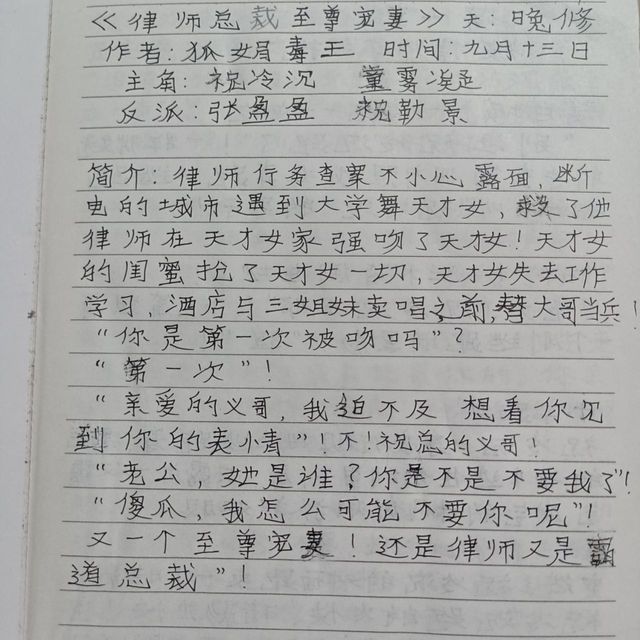 《律师总裁至尊宠妻》 天:晚修
作者:狐娟毒王 时间:九月十三日
主角:祝冷沉 董雾凝
反派:张盈盈 祝勒景
简介:律师行务查案不小心露面,断
电的城市遇到大学舞天才女,救了他
律师在天才女家强吻了天才女!天才女
的闺蜜抢了天才女一切,天才女失去工作
学习,酒店与三姐妹卖唱之前,替大哥当兵!
“你是第一次被吻吗”?
“第一次”!
“亲爱的义哥,我迫不及 想看你见
到你的表情”!不!祝总的义哥!
“老公,她是谁?你是不是不要我了”!
“傻瓜,我怎么可能不要你呢”!
又一个至尊宠妻!还是律师又是霸
道总裁”!